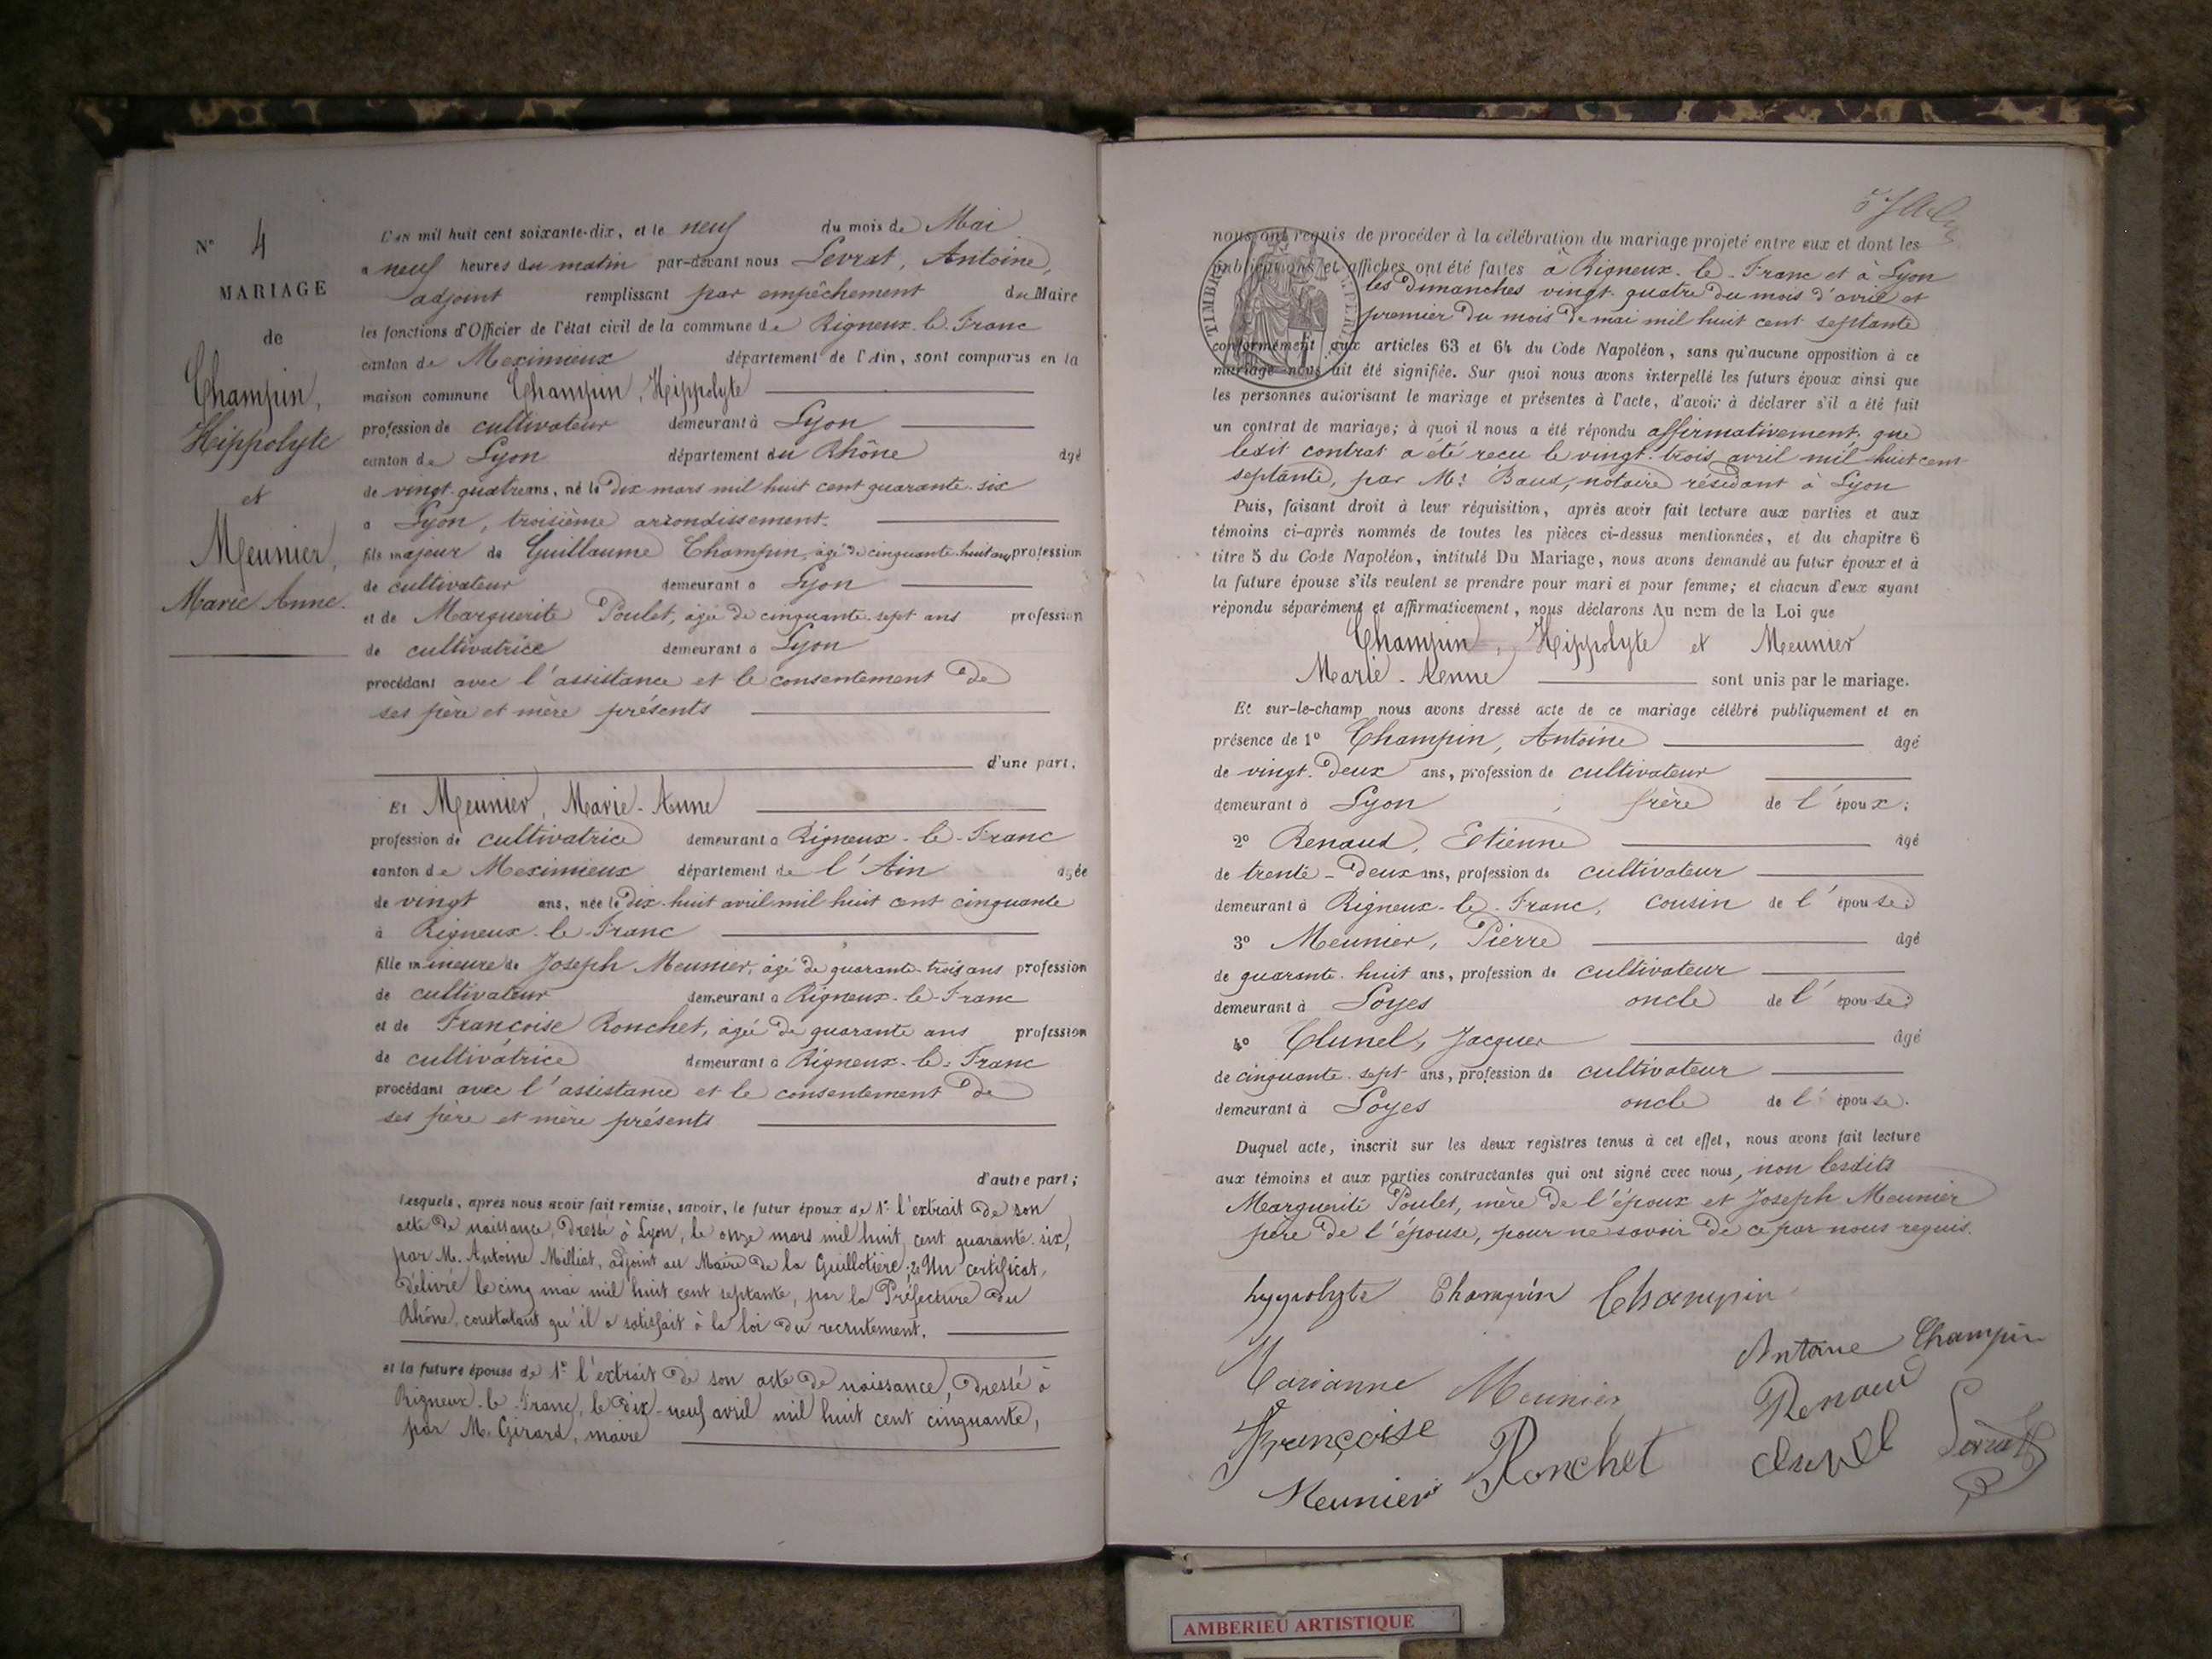 N° 4
MARIAGE
de
Champin,
Hippolyte
et
Meunier,
Marie Anne.
L'AN mil huit cent soixante-dix, et le neuf du mois de Mai
a neuf heures du matin par-devant nous Levrat, Antoine,
adjoint remplissant par empêchement du Maire
les fonctions d'Officier de l'état civil de la commune de Rigneux-le-Franc
canton de Meximieux département de l'Ain, sont comparus en la
maison commune Champin, Hippolyte
profession de cultivateur demeurant à Lyon
canton de Lyon département du Rhône âgé
de vingt-quatre ans, né le dix mars mil huit cent quarante-six
a Lyon, troisième arrondissement.
fils majeur de Guillaume Champin, âgé de cinquante-huit ans profession
de cultivateur demeurant a Lyon
et de Marguerite Poulet, âgée de cinquante-sept ans profession
de cultivatrice demeurant a Lyon
procédant avec l'assistance et le consentement de
ses père et mère présents
d'une part.
Et Meunier, Marie-Anne
profession de cultivatrice demeurant a Rigneux-le-Franc
canton de Meximieux département de l'Ain âgée
de vingt ans, née le dix-huit avril mil huit cent cinquante
à Rigneux-le-Franc
fille mineure de Joseph Meunier, âgé de quarante-trois ans profession
de cultivateur demeurant a Rigneux-le-Franc
et de Françoise Ronchet, âgée de quarante ans profession
de cultivatrice demeurant à Rigneux-le-Franc
procédant avec l'assistance et le consentement de
ses père et mère présents
d'autre part;
Lesquels, après nous avoir fait remise, savoir, le futur époux de 1° l'extrait de son
acte de naissance, dressé à Lyon, le onze mars mil huit cent quarante-six,
par M. Antoine Milliat, adjoint au Maire de la Guillotière; 2° Un certificat,
délivré le cinq mai mil huit cent septante, par la Préfecture du
Rhône, constatant qu'il a satisfait à la loi du recrutement.
et la future épouse de 1° l'extrait de son acte de naissance, dressé à
Rigneux-le-Franc, le dix-neuf avril mil huit cent cinquante,
par M. Girard, maire
nous ont requis de procéder à la célébration du mariage projeté entre eux et dont les
publications et affiches ont été faites à Rigneux-le-Franc et à Lyon
les dimanches vingt-quatre du mois d'avril et
premier du mois de mai mil huit cent septante
conformément aux articles 63 et 64 du Code Napoléon, sans qu'aucune opposition à ce
mariage nous ait été signifiée. Sur quoi nous avons interpellé les futurs époux ainsi que
les personnes autorisant le mariage et présentes à l'acte, d'avoir à déclarer s'il a été fait
un contrat de mariage; à quoi il nous a été répondu affirmativement, que
ledit contrat a été reçu le vingt-trois avril mil huit cent
septante, par Me Baud, notaire résidant à Lyon
Puis, faisant droit à leur réquisition, après avoir fait lecture aux parties et aux
témoins ci-après nommés de toutes les pièces ci-dessus mentionnées, et du chapitre 6
titre 5 du Code Napoléon, intitulé Du Mariage, nous avons demandé au futur époux et à
la future épouse s'ils veulent se prendre pour mari et pour femme; et chacun d'eux ayant
répondu séparément et affirmativement, nous déclarons Au nom de la Loi que
Champin, Hippolyte et Meunier
Marie-Anne sont unis par le mariage.
Et sur-le-champ nous avons dressé acte de ce mariage célébré publiquement et en
présence de 1° Champin, Antoine âgé
de vingt-deux ans, profession de cultivateur
demeurant à Lyon frère de l'époux;
2° Renaud, Etienne âgé
de trente-deux ans, profession de cultivateur
demeurant à Rigneux-le-Franc, cousin de l'épouse;
3° Meunier, Pierre âgé
de quarante-huit ans, profession de cultivateur
demeurant à Loyes oncle de l'épouse;
4° Clunel, Jacques âgé
de cinquante-sept ans, profession de cultivateur
demeurant à Loyes oncle de l'épouse.
Duquel acte, inscrit sur les deux registres tenus à cet effet, nous avons fait lecture
aux témoins et aux parties contractantes qui ont signé avec nous, non lesdits
Marguerite Poulet, mère de l'époux et Joseph Meunier
père de l'épouse, pour ne savoir de ce par nous requis.
hyppolyte Champin Champin
Marianne Meunier Antoine Champin
Françoise Ronchet Renaud
Meunier Clunel Levrat
TIMBRE
AMBERIEU ARTISTIQUE